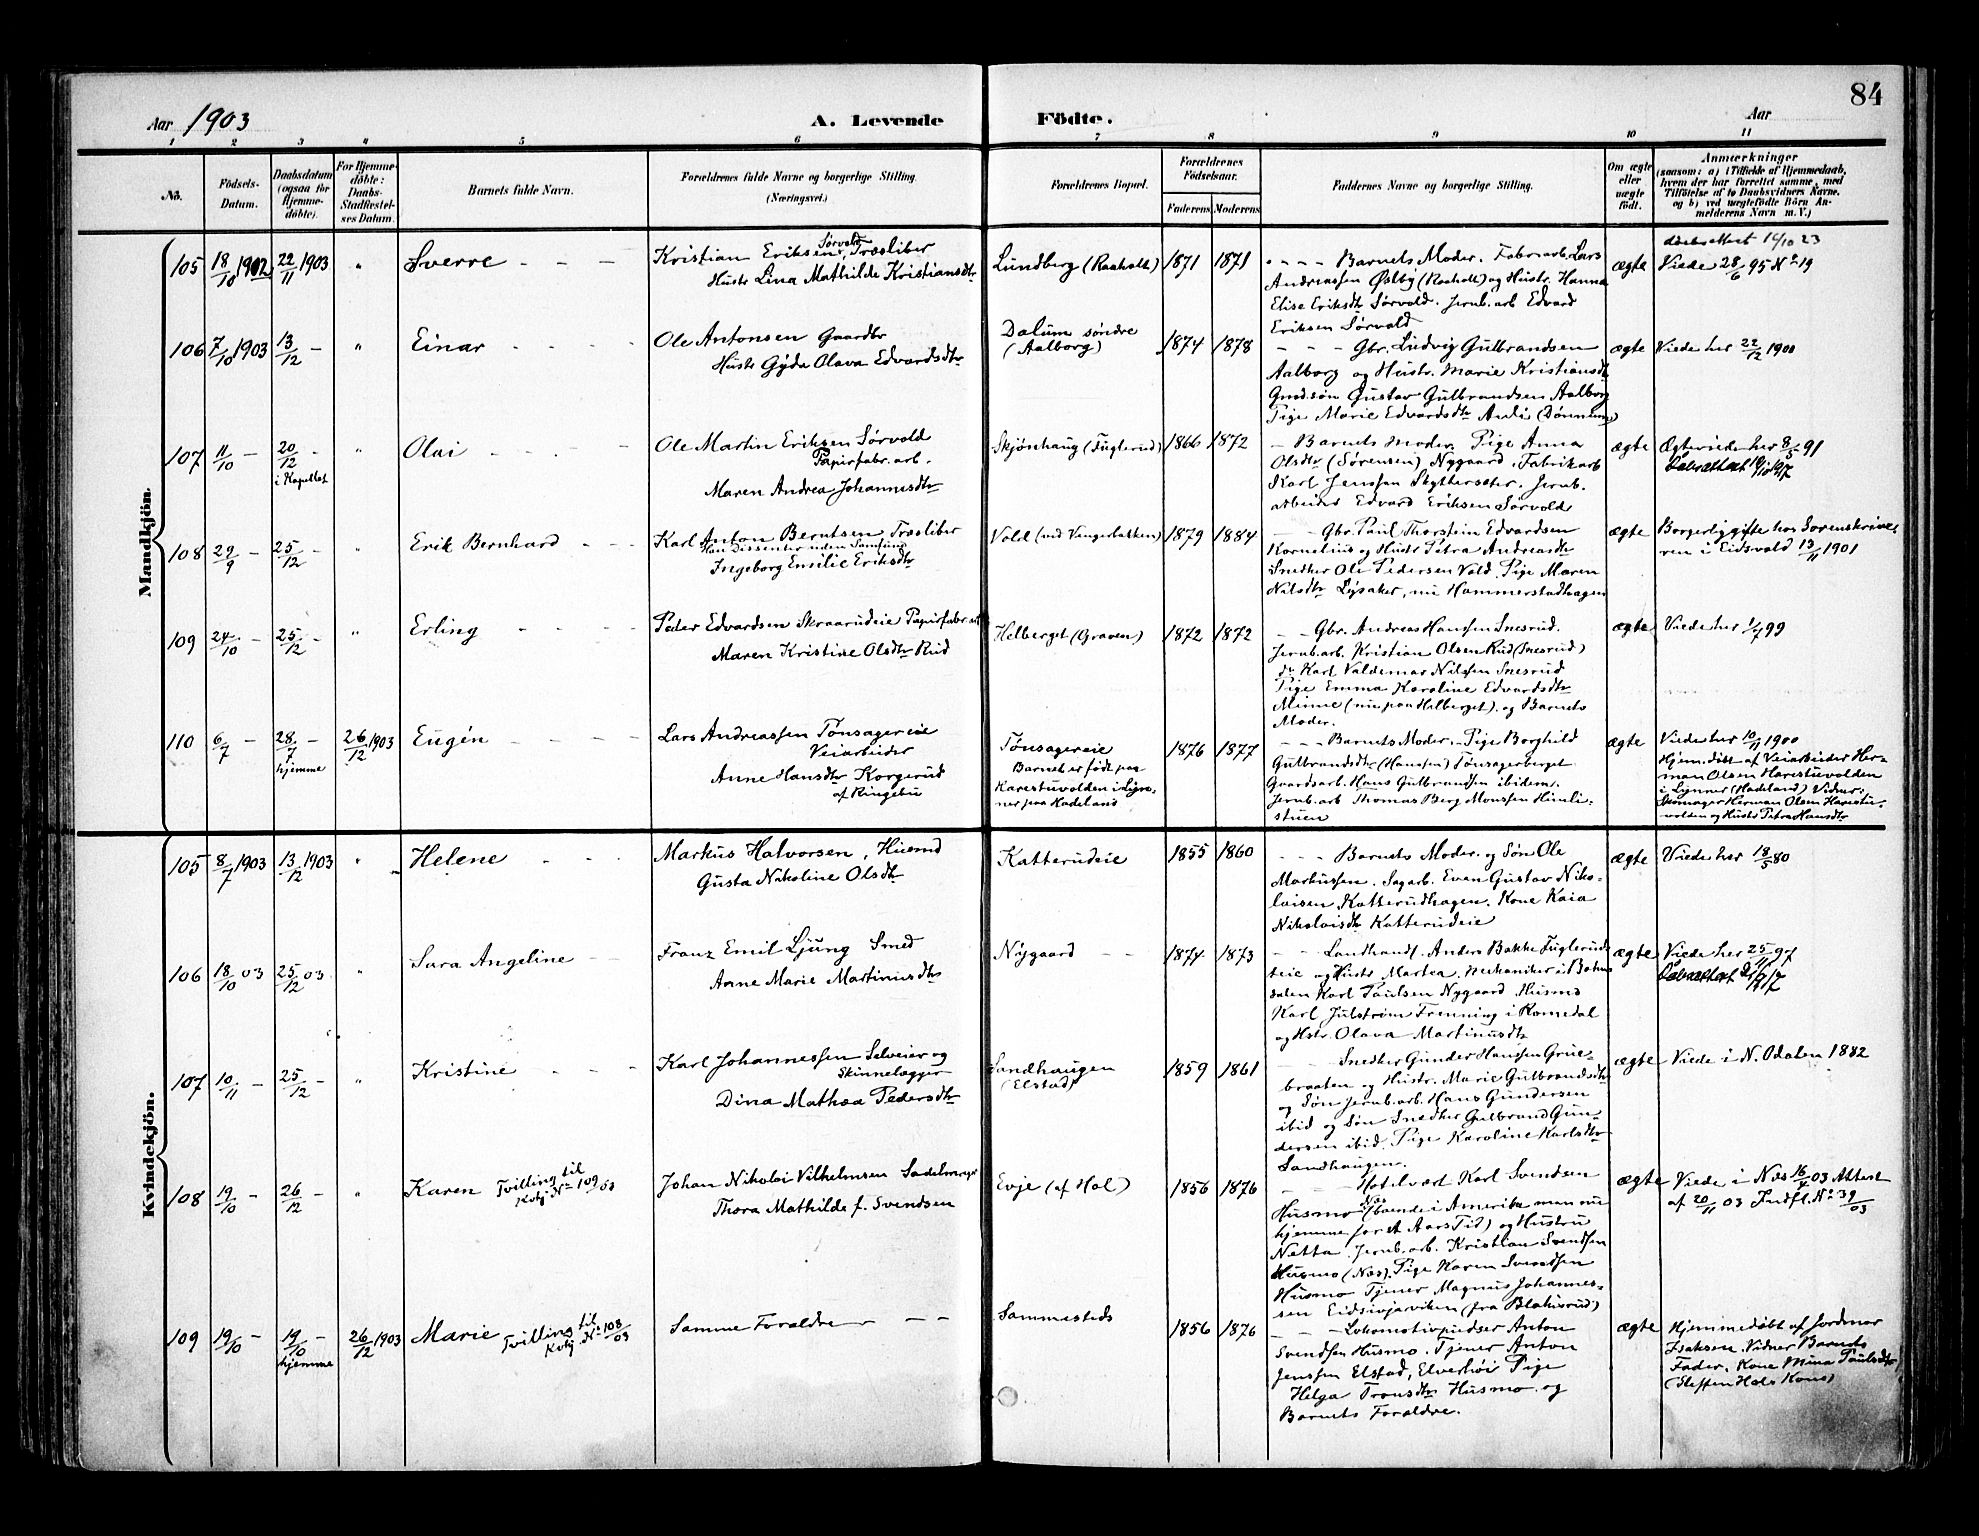 84
Aar 1903
A. Levende
Födte.
Aar
1 2 3 4 5 6 7 8 9 10 11
No.
Födsels-
Datum.
Daabsdatum
(ogsaa for
Hjemme-
döbte).
For Hjemme-
döbte:
Daabs-
Stadfæstel-
ses Datum.
Barnets fulde Navn.
Forældrenes fulde Navne og borgerlige Stilling.
(Næringsvei.)
Forældrenes Bopæl.
Forældrenes
Födselsaar.
Faderens Moderens
Faddernes Navne og borgerlige Stilling.
Om ægte
eller
uægte
födt.
Anmærkninger
(saasom: a) i Tilfælde af Hjemmedaab,
hvem der har forrettet samme, med
Tilföielse af to Daabsvidners Navne,
og b) ved uægtefödte Börn An-
melderens Navn m.V.)
Mandkjön.
105 18/10 1902 22/11 1903 " Sverre
Kristian Eriksen Sørvold, Træsliber
Hustr Lina Mathilde Kristiansdtr
Lundberg (Raaholt) 1871 1871
Barnets Moder. Fabr.arb. Lars
Andreassen Østby (Raaholt) og Hustr. Hanna
Elise Eriksdtr Sørvold. Jernb.arb Edvard
Eriksen Sørvold
ægte
16/10 23
Viede 28/6 95 No 19
106 7/10 1903 13/12 - " Einar
Ole Antonsen Gaardbr
Hustr Gyda Olava Edvardsdtr
Dalum søndre
(Aalborg)
1874 1878
Gbr. Ludvig Gulbrandsen
Aalborg og Hustr. Marie Kristiansdtr
Gmd.søn Gustav Gulbrandsen Aalborg
Pige Marie Edvardsdtr
ægte
Viede her 22/12 1900
107 11/10 - 20/12 - " Olai
i Kapellet
Ole Martin Eriksen Sørvold
Papirfabr.arb.
Maren Andrea Johannesdtr
Skjønhaug (Fuglerud) 1866 1872
Barnets Moder. Pige Anna
Olsdtr (Sørensen) Nygaard. Fabrikarb
Karl Jenssen Skytterseter. Jernb.
arbeider Edvard Eriksen Sørvold
ægte
Ægteviede her 8/5 91
108 29/9 - 25/12 - " Erik Bernhard
Karl Anton Berntsen Træsliber
Han Dissenter uden Samfund
Ingeborg Emilie Eriksdtr
Vold (ved Vengerbakken) 1879 1884
Gbr. Paul Thorstein Edvardsen
Kornelius og Hustr Petra Andreasdtr
Snedker Ole Pedersen Vold. Pige Maren
Nilsdtr Lysaker, nu Hammerstadhagen
ægte
Borgerlig gifte hos Sorenskrive-
ren i Eidsvold 13/11 1901
109 24/10 - 25/12 - " Erling
Peder Edvardsen Skraarudeie Papirfabr.arb
Maren Kristine Olsdtr Rud
Helberget (Graven) 1872 1872
Gbr. Andreas Hansen Snesrud.
Jernb.arb. Kristian Olsen Rud (Snesrud)
do Karl Valdemar Nilssen Snesrud
Pige Emma Karoline Edvardsdtr
Minne (nu paa Helberget). og Barnets
Moder.
ægte
Viede her 1/7 99
110 6/7 - 28/7 - 26/12 1903 Eugén
hjemme
Lars Andreassen Tønsagereie
Veiarbeider
Anne Hansdtr Korgerud
af Ringebu
Tønsagereie
Barnet er født paa
Harestuvolden i Lyn-
ner paa Hadeland
1876 1877
Barnets Moder. Pige Borghild
Gulbrandsdtr (Hansen) Tønsagerberget
Gaardsarb. Hans Gulbrandsen ibidem.
Jernb.arb Thomas Berg Monssen Himli-
stuen
ægte
Viede her 10/11 1900
Hjem.døbt af Veiarbeider Her-
man Olsen Harestuvolden
i Lynner (Hadeland) Vidner:
Skomager Herman Olsen Harestu-
volden og Hustr Petra Hansdtr
Kvindekjön.
105 8/7 1903 13/12 1903 " Helene
Markus Halvorsen, Husmd
Gusta Nikoline Olsdtr
Katterudeie 1855 1860
Barnets Moder. og Søn Ole
Markussen. Sagarb. Even Gustav Niko-
laisen Katterudhagen. Kone Kaia
Nikolaisdtr Katterudeie
ægte
Viede her 18/5 80
106 18/10 03 25/12 03 " Sara Angeline
Franz Emil Ljung Smed
Anne Marie Martinusdtr
Nygaard 1874 1873
Landhandl. Anders Bakke Fuglerud-
eie og Hustr Martea. Mekaniker i Bøhns
dalen Karl Paulsen Nygaard Husmd
Karl Julstrøm Frenning i Romedal
og Hstr. Olava Martinusdtr
ægte
Viede her 25/11 97
107 10/11 - 25/12 - " Kristine
Karl Johannessen Selveier og
Skinnelægger
Dina Mathea Pedersdtr
Sandhaugen
(Elstad)
1859 1861
Snedker Gunder Hansen Grue-
braaten og Hustr. Marie Gulbrandsdtr
og Søn Jernb.arb. Hans Gundersen
ibid og Søn Snedker Gulbrand Gun-
dersen ibid. Pige Karoline Karlsdtr
Sandhaugen.
ægte
Viede i N. Odalen 1882
108 19/10 - 26/12 - " Karen Tvilling til
Kvkj No 109/03
Johan Nikolai Vilhelmsen Sadelmager
Thora Mathilde f. Svendsen
Evje (af Hol) 1856 1876
Hotelvært Karl Svendsen
Husmo Næs (boende i Amerika men nu
hjemme for et Aars Tid) og Hustru
Netta. Jernb.arb. Kristian Svendsen
Husmo (Næs). Pige Karen Svendsen
Husmo Tjener Magnus Johannes-
sen Eidsivjarviken (fra Blakisrud)
ægte
Viede i Næs 16/4 03 Attest
af 20/11 03 Indfl. No 39/03
109 19/10 - 19/10 - 26/12 1903 Marie Tvilling til
Kvkj No 108/03
hjemme
Samme Forældre
Sammesteds
1856 1876
Lokomotivpudser Anton
Svendsen Husmo. Tjener Anton
Jenssen Elstad, Elverhøi Pige
Helga Tronsdtr Husmo. og
Barnets Forældre.
ægte
Hjemmedøbt af Jordmor
Isaksen. Vidner Barnets
Fader. Kone Mina Paulsdtr
(Steffen Hols Kone)